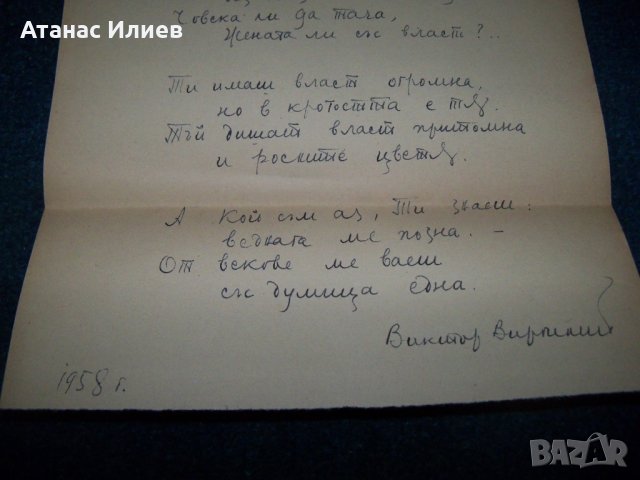 Атанас Илиев
Човека ли да тача,
Жената ли със власт?..
Ти имаш власт огромна,
но в кротостта е тя.
Тъй дишат власт притомна
и росните цветя.
А кой съм аз, Ти знаеш:
ме позна. –
От векове ме ваеш
със думица една.
Виктор
1958 г.
BAZAR